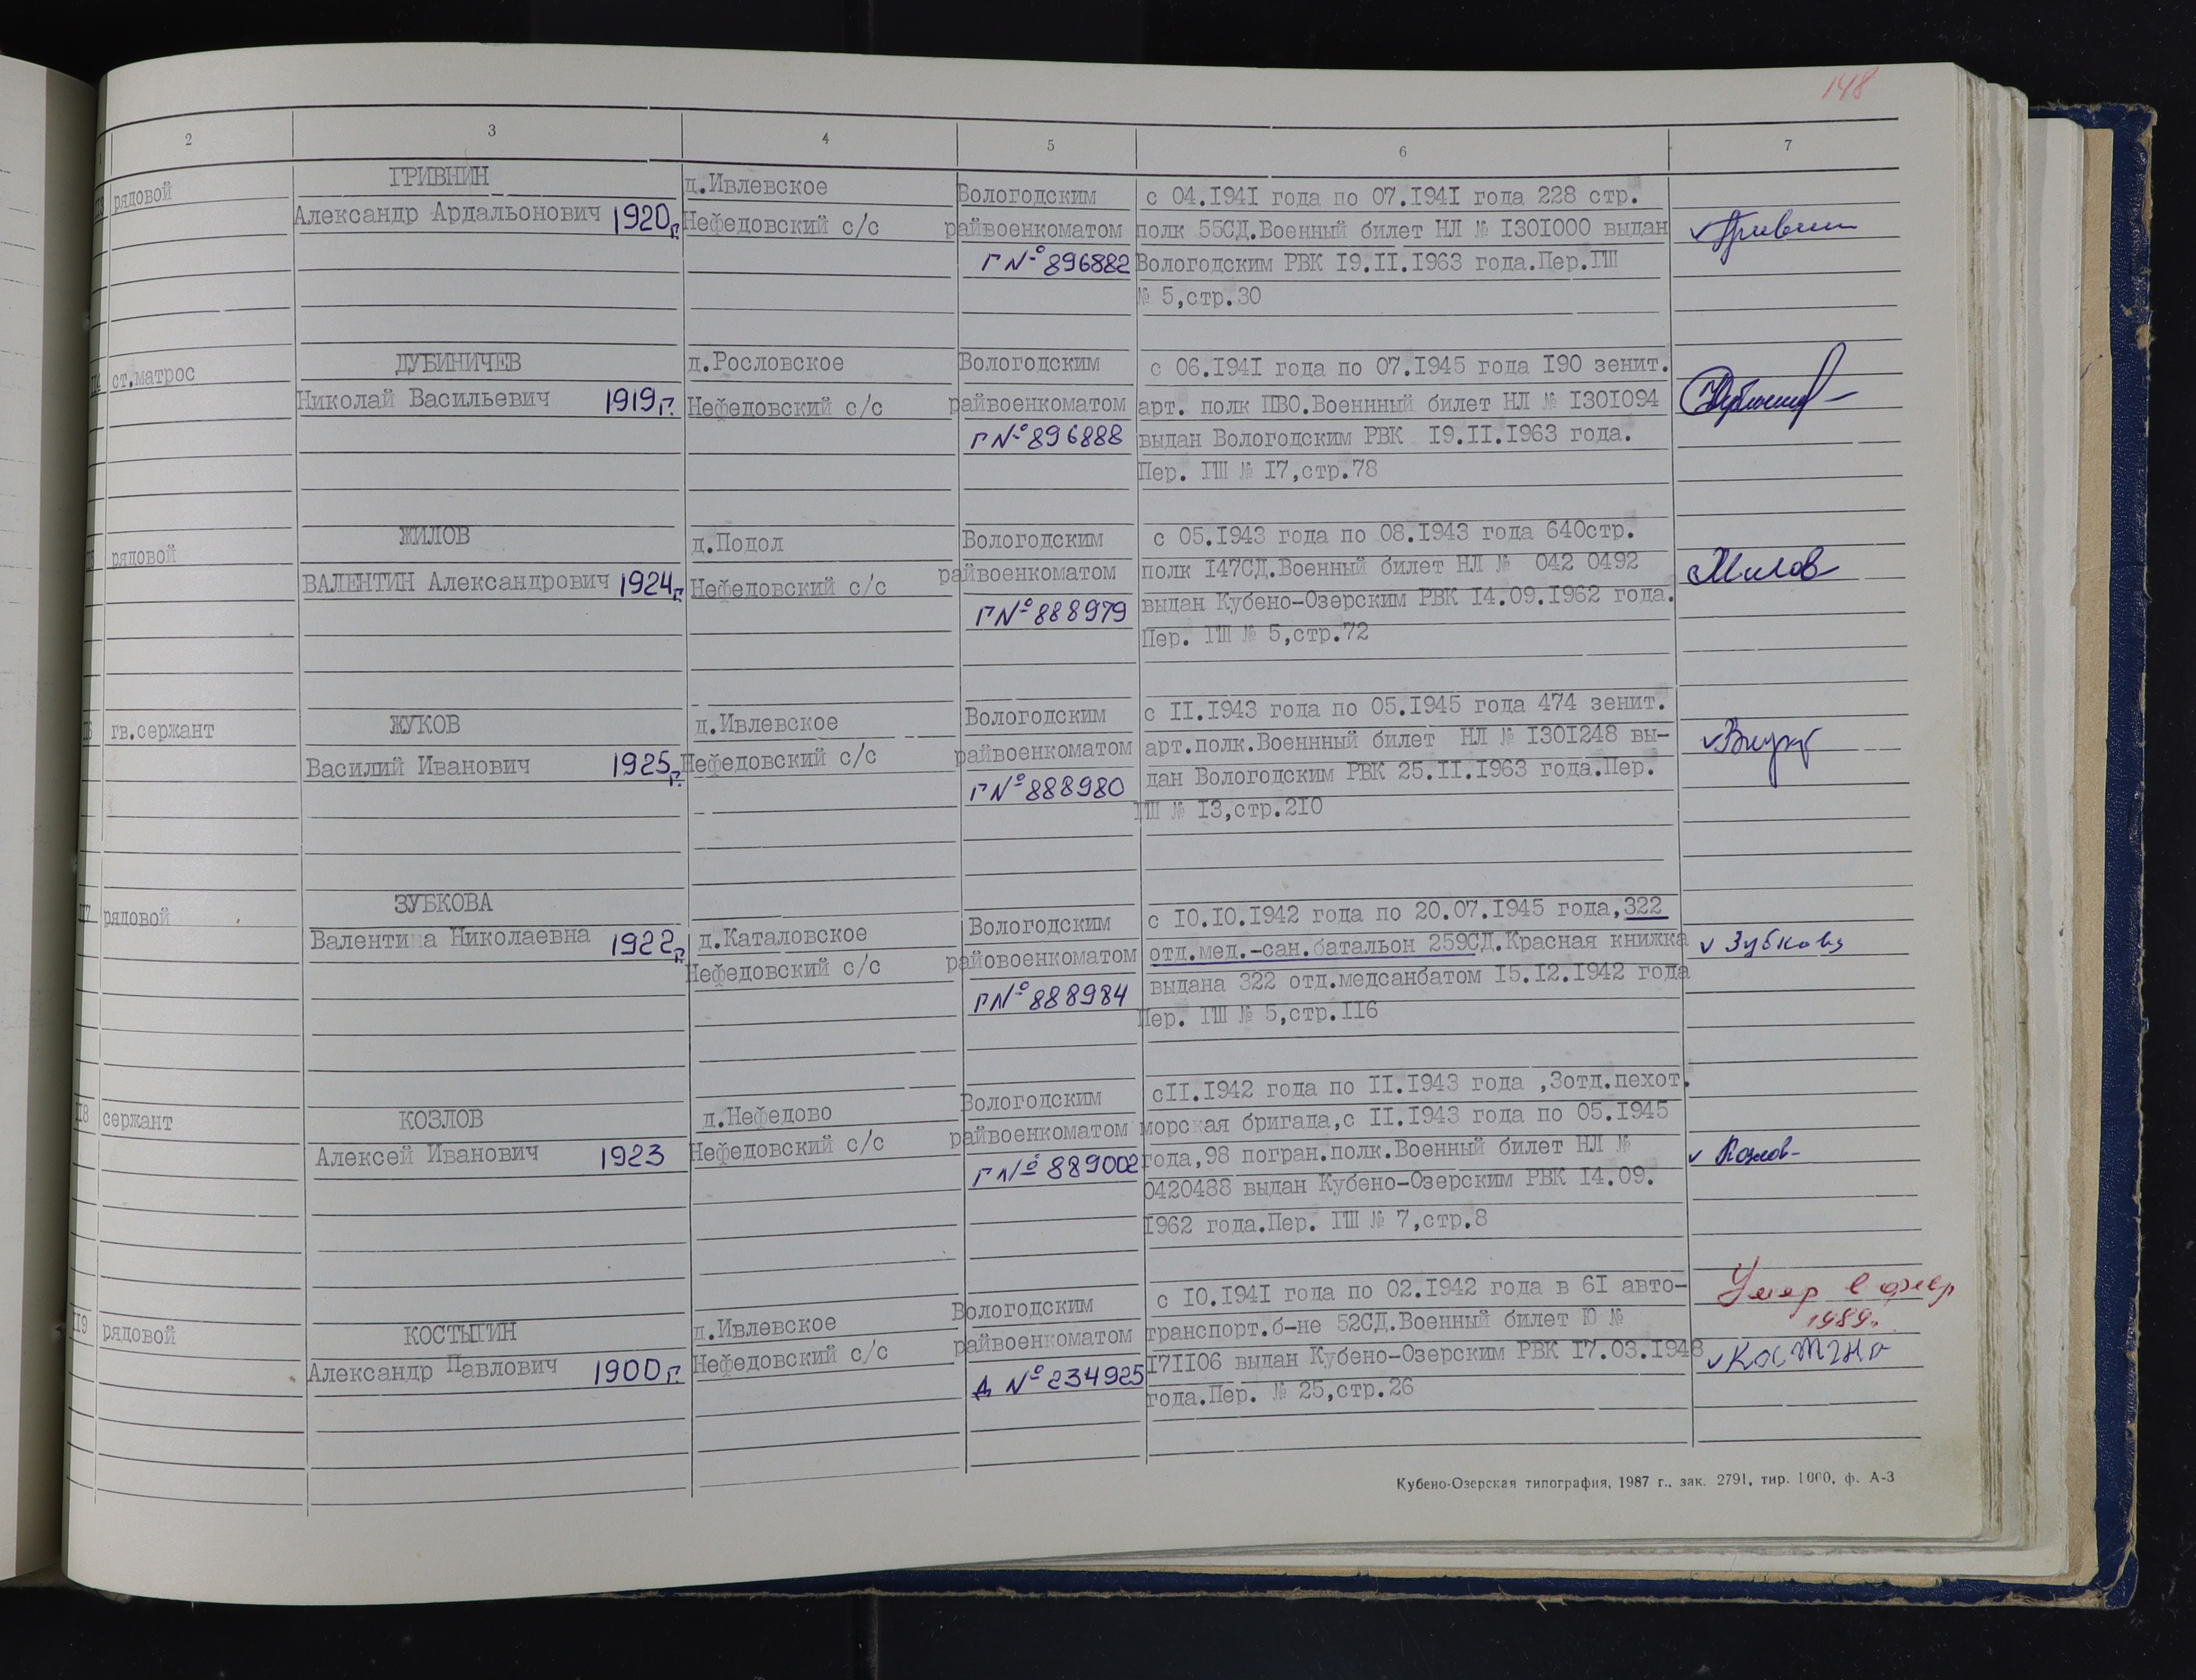 148
2 3 4 5 6 7
рядовой
ГРИВНИН
Александр Ардальонович 1920г.
д.Ивлевское
Нефедовский с/с
Вологодским
райвоенкоматом
Г № 896882
с 04.I94I года по 07.I94I года 228 стр.
полк 55СД.Военный билет НЛ № I30I000 выдан
Вологодским РВК I9.II.I963 года.Пер.ГШ
№ 5,стр.30
ст.матрос
ДУБИНИЧЕВ
Николай Васильевич 1919г.
д.Рословское
Нефедовский с/с
Вологодским
райвоенкоматом
Г № 896888
с 06.I94I года по 07.I945 года I90 зенит.
арт. полк ПВО.Военнный билет НЛ № I30I094
выдан Вологодским РВК I9.II.I963 года.
Пер. ГШ № I7,стр.78
рядовой
ЖИЛОВ
ВАЛЕНТИН Александрович 1924г.
д.Подол
Нефедовский с/с
Вологодским
райвоенкоматом
Г № 888979
с 05.I943 года по 08.I943 года 640стр.
полк I47СД.Военный билет НЛ № 042 0492
выдан Кубено-Озерским РВК I4.09.I962 года.
Пер. ГШ № 5,стр.72
гв.сержант
ЖУКОВ
Василий Иванович 1925г.
д.Ивлевское
Нефедовский с/с
Вологодским
райвоенкоматом
Г № 888980
с II.I943 года по 05.I945 года 474 зенит.
арт.полк.Военнный билет НЛ № I30I248 вы-
дан Вологодским РВК 25.II.I963 года.Пер.
ГШ № I3,стр.2I0
рядовой
ЗУБКОВА
Валентина Николаевна 1922г.
д.Каталовское
Нефедовский с/с
Вологодским
райовоенкоматом
Г № 888984
с I0.I0.I942 года по 20.07.I945 года,322
отд.мед.-сан.батальон 259СД.Красная книжка
выдана 322 отд.медсанбатом I5.I2.I942 года
Пер. ГШ № 5,стр.II6
✓ Зубкова
сержант
КОЗЛОВ
Алексей Иванович 1923
д.Нефедово
Нефедовский с/с
Вологодским
райвоенкоматом
Г № 889002
сII.I942 года по II.I943 года ,3отд.пехот.
морская бригада,с II.I943 года по 05.I945
года,98 погран.полк.Военный билет НЛ №
0420488 выдан Кубено-Озерским РВК I4.09.
I962 года.Пер. ГШ № 7,стр.8
✓ Козлов
рядовой
КОСТЫГИН
Александр Павлович 1900г.
д.Ивлевское
Нефедовский с/с
Вологодским
райвоенкоматом
А № 234925
с I0.I94I года по 02.I942 года в 6I авто-
транспорт.б-не 52СД.Военный билет Ю №
I7II06 выдан Кубено-Озерским РВК I7.03.I948
года.Пер. № 25,стр.26
Умер в
1989г.
Кубено-Озерская типография, 1987 г., зак. 2791, тир. 1000, ф. А-3